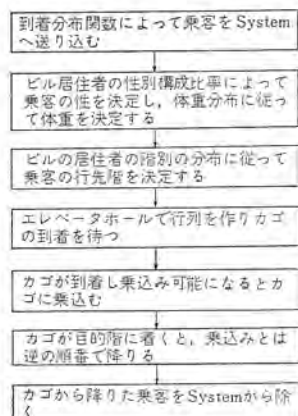 到着分布関数によって乗客をSystem
へ送り込む
ビル居住者の性別構成比率によって
乗客の性を決定し，体重分布に従っ
て体重を決定する
ビルの居住者の階別の分布に従って
乗客の行先階を決定する
エレベータホールで行列を作りカゴ
の到着を待つ
カゴが到着し乗込み可能になるとカ
ゴに乗込む
カゴが目的階に着くと，乗込みとは
逆の順番で降りる
カゴから降りた乗客をSystemから除
く